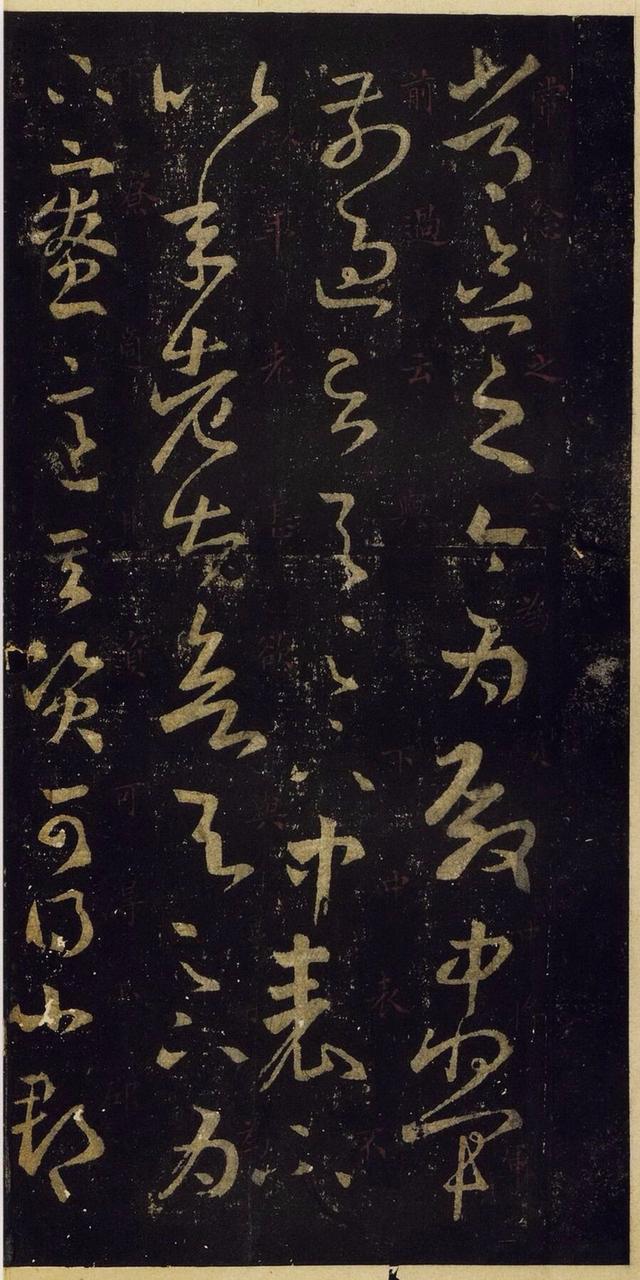 常念之今為殿中將軍
前過云與足下中表不
以年老甚欲與足下為
下寮意其資可得小郡